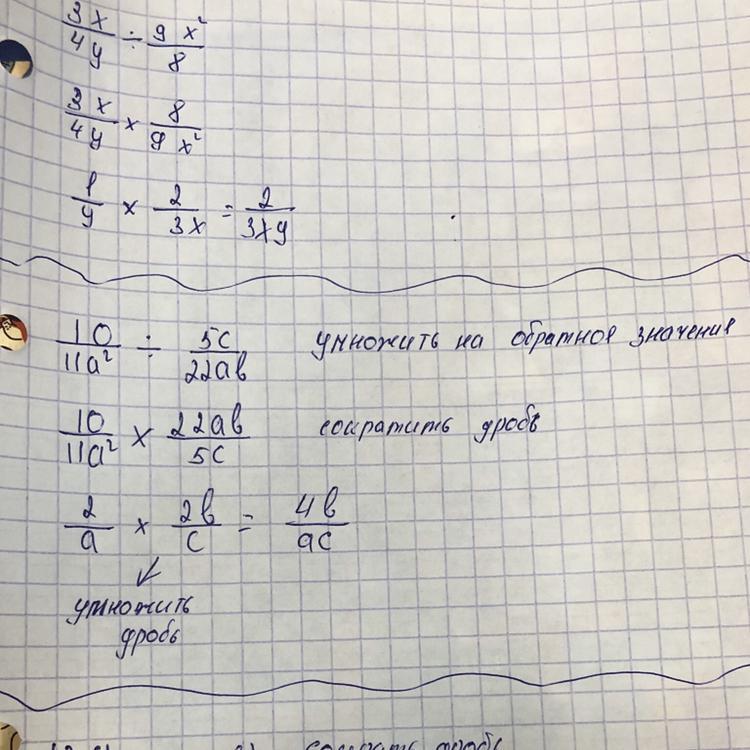 3x/4y ÷ 9x²/8
3x/4y × 8/9x²
1/y × 2/3x = 2/3xy
10/11a² ÷ 5c/22ab умножить на обратное значение
10/11a² × 22ab/5c сократить дробь
2/a × 2b/c = 4b/ac
умножить
дробь
дробь